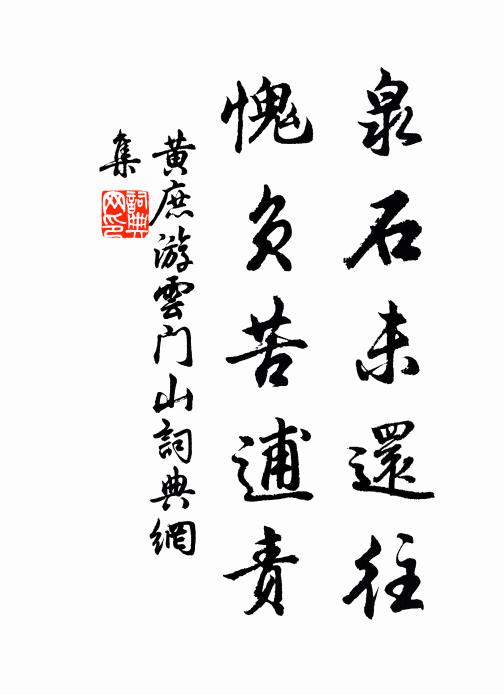 泉石未還往
愧負苦逋責
黄庶游雲門山詞典網
集
詞典
网印